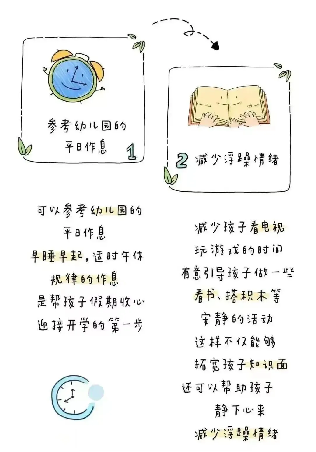 参考幼儿园的
平日作息
1
可以参考幼儿园的
平日作息
早睡早起，适时午休
规律的作息
是帮孩子假期收心
迎接开学的第一步
2 减少浮躁情绪
减少孩子看电视
玩游戏的时间
有意引导孩子做一些
看书、搭积木等
安静的活动
这样不仅能够
拓宽孩子知识面
还可以帮助孩子
静下心来
减少浮躁情绪